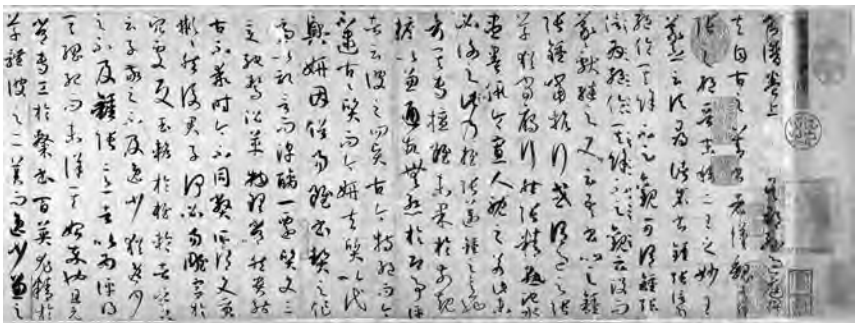 書譜卷上 吳郡孫過庭撰
夫自古之善書者漢魏有
鍾張之絕晉末稱二王之妙王
羲之云頃尋諸名書鍾張信為
絕倫其餘不足觀可謂鍾張
信為絕倫其餘不足觀云沒而
羲獻繼之又云吾書比之鍾
張鍾當抗行或謂過之張
草猶當鴈行然張精熟池水
盡墨假令寡人耽之若此未
必謝之此乃推張邁鍾之意也
考其專擅雖未果於前規
摭以兼通故無慚於即事評
者云彼之四賢古今特絕而今
不逮古古質而今妍夫質以代
興妍因俗易雖書契之作
適以記言而淳醨一遷質文三
變馳鶩沿革物理常然貴能
古不乖時今不同弊所謂文質
彬彬然後君子何必易雕宮於
穴處反玉輅於椎輪者乎又
云子敬之不及逸少猶逸少
之不及鍾張意者以為評得
其綱紀而未詳其始卒也且元
常專工於隸書百英尤精於
草體彼之二美而逸少兼之